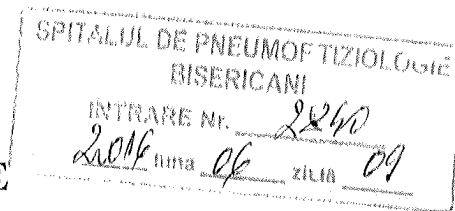 SPITALUL DE PNEUMOFTIZIOLOGIE
BISERICANI
INTRARE Nr. 2240
2016 luna 06 ziua 09
E